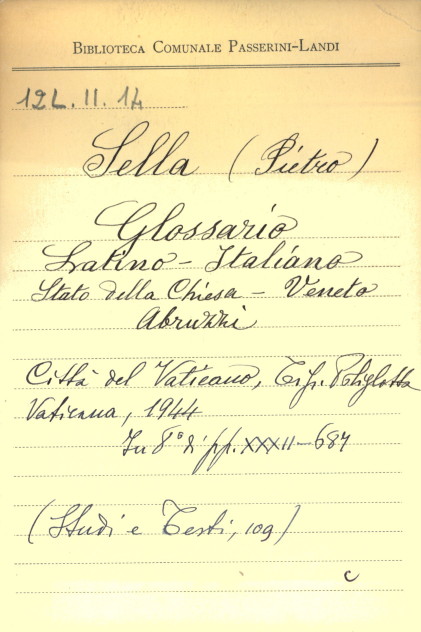 BIBLIOTECA COMUNALE PASSERINI-LANDI
12L. II. 14
Sella (Pietro)
Glossario
Latino - Italiano
Stato della Chiesa - Veneto
Abruzzi
Città del Vaticano, Tip. Poliglotta
Vaticana, 1944
In 8° di pp. XXXII-687
(Studi e Testi, 109)
c